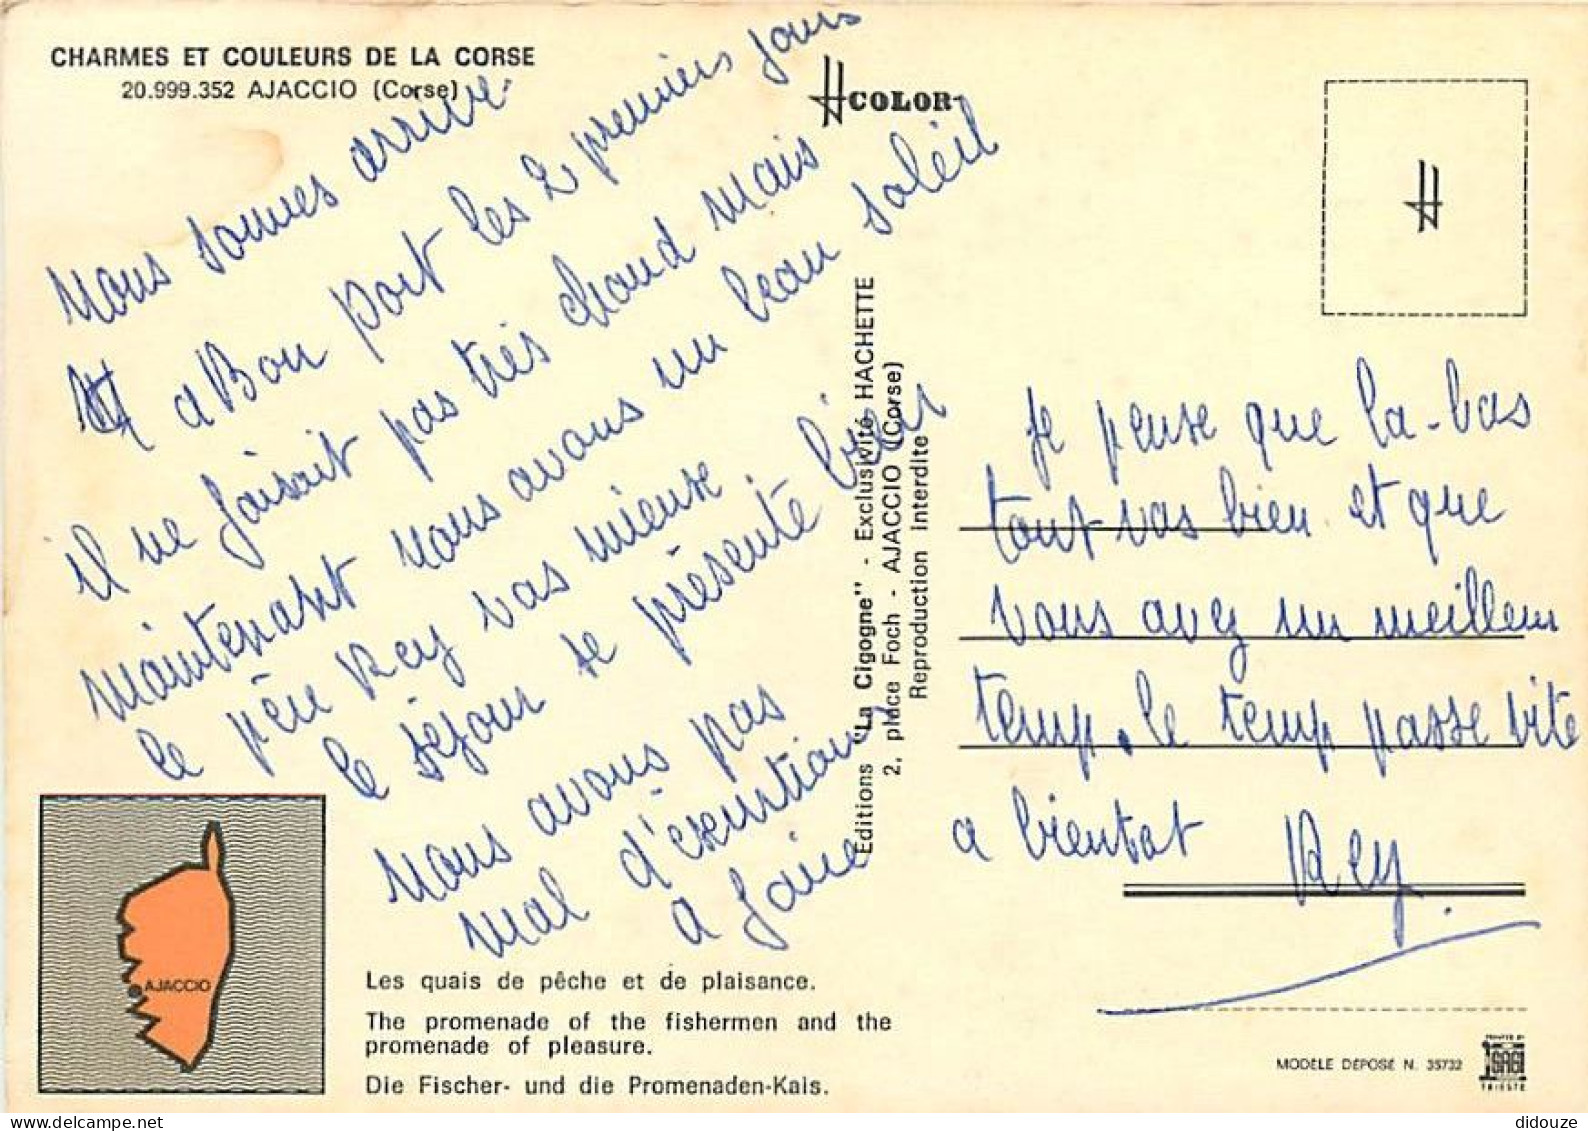 CHARMES ET COULEURS DE LA CORSE
20.999.352 AJACCIO (Corse)
Nous sommes arrive
a Bon port les 2 premiers jours
il ne faisait pas très chaud mais
maintenant nous avons un beau soleil
le père Rey vas mieuse
le séjour se présente bien
Nous avons pas
mal d'escurtions
a faire
Les quais de pêche et de plaisance.
The promenade of the fishermen and the
promenade of pleasure.
Die Fischer- und die Promenaden-Kais.
AJACCIO
COLOR
Editions "La Cigogne" - Exclusivité HACHETTE
2, place Foch - AJACCIO (Corse)
Reproduction Interdite
Je pense que la-bas
tout vas bien et que
vous avez un meilleur
temp. le temp passe vite
a bientot Rey
MODÈLE DÉPOSÉ N. 35732
PRINTED BY
SAGI
TRIESTE
didouze